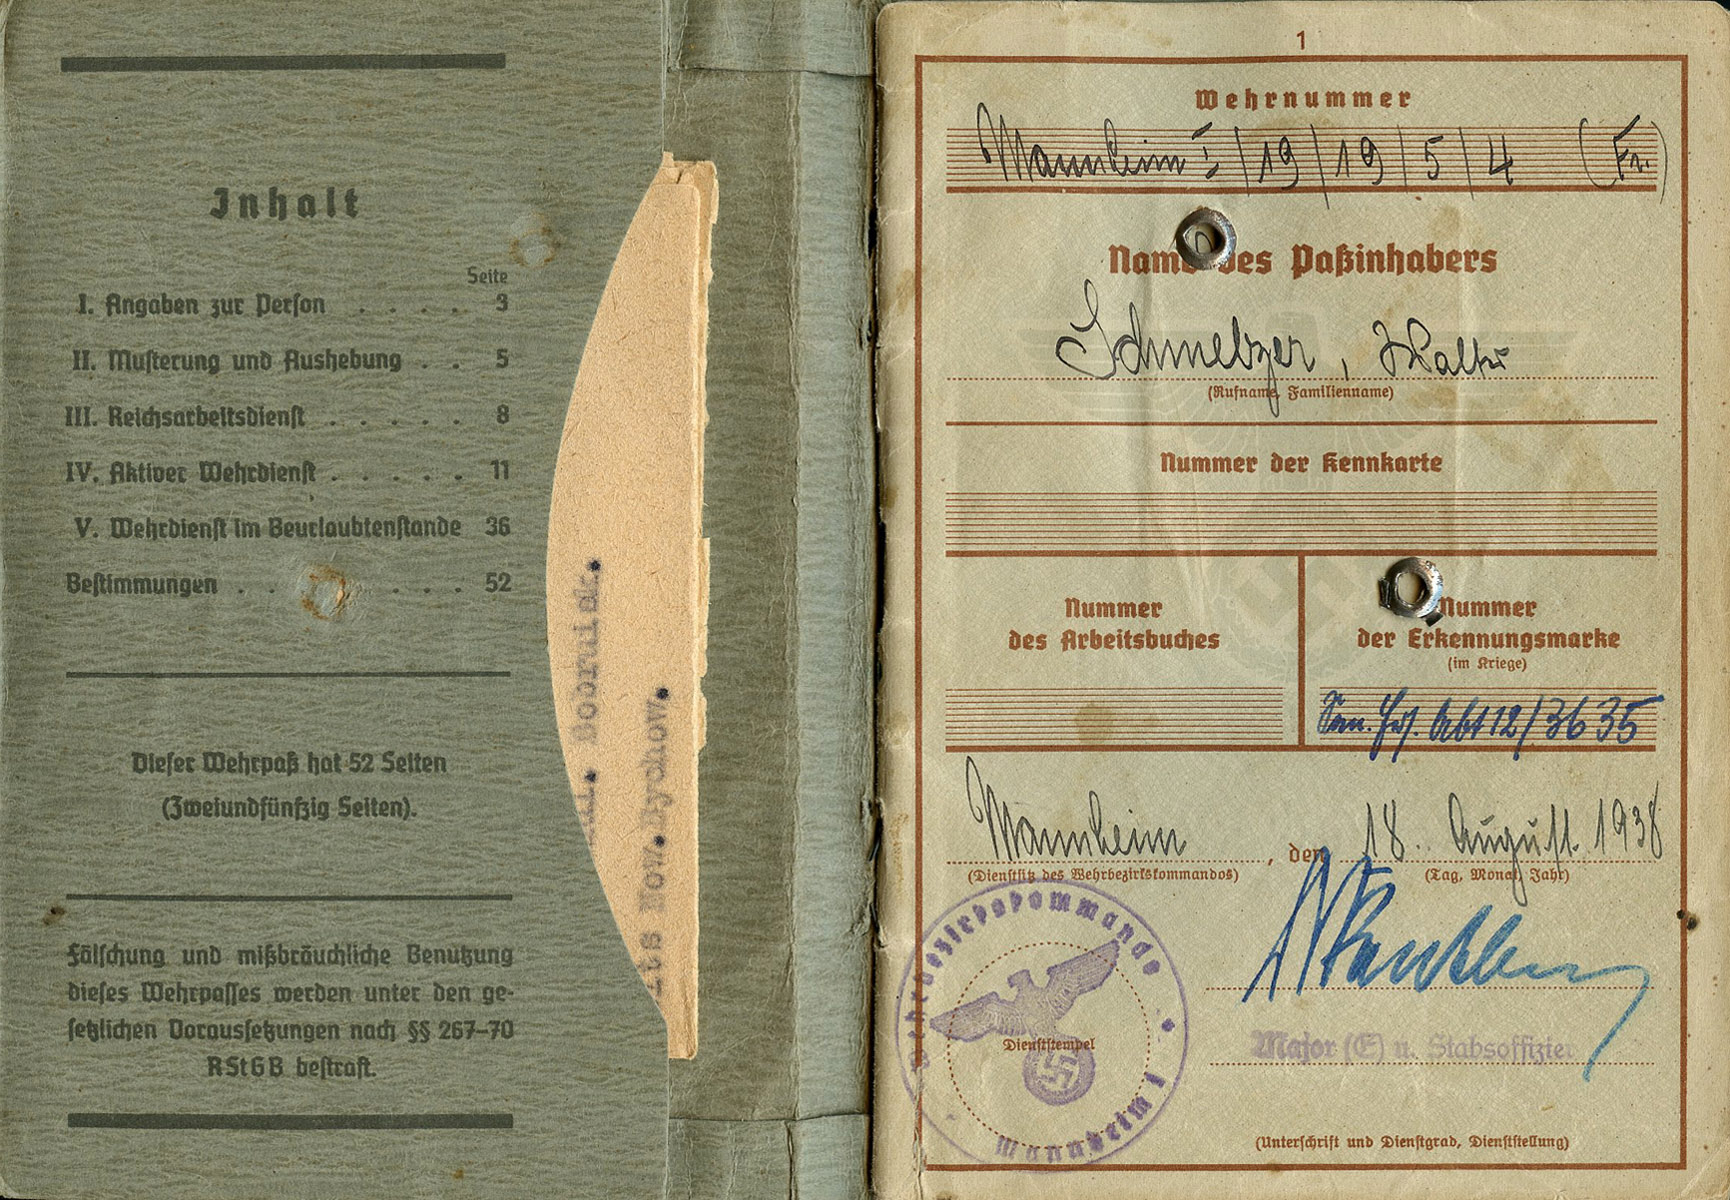 Inhalt
Seite
I. Angaben zur Person . . . . 3
II. Musterung und Aushebung . . 5
III. Reichsarbeitsdienst . . . . . 8
IV. Aktiver Wehrdienst . . . . . 11
V. Wehrdienst im Beurlaubtenstande 36
Bestimmungen . . . . . . 52
Dieser Wehrpaß hat 52 Seiten
(Zweiundfünfzig Seiten).
Fälschung und mißbräuchliche Benutzung
dieses Wehrpasses werden unter den ge-
setzlichen Voraussetzungen nach §§ 267–70
RStGB bestraft.
Bobruisk.
Now.Bychow.
1
Wehrnummer
Mannheim I /19/19/5/4 (Fr.)
Name des Paßinhabers
Schmelzer, Walter
(Rufname, Familienname)
Nummer der Kennkarte
Nummer
des Arbeitsbuches
Nummer
der Erkennungsmarke
(im Kriege)
San. Ers. Abt 12/3635
Mannheim, den 18. August 1938
(Dienstsitz des Wehrbezirkskommandos) (Tag, Monat, Jahr)
Wehrbezirkskommando
Dienststempel
Mannheim I
Major (E) u. Stabsoffizier
(Unterschrift und Dienstgrad, Dienststellung)